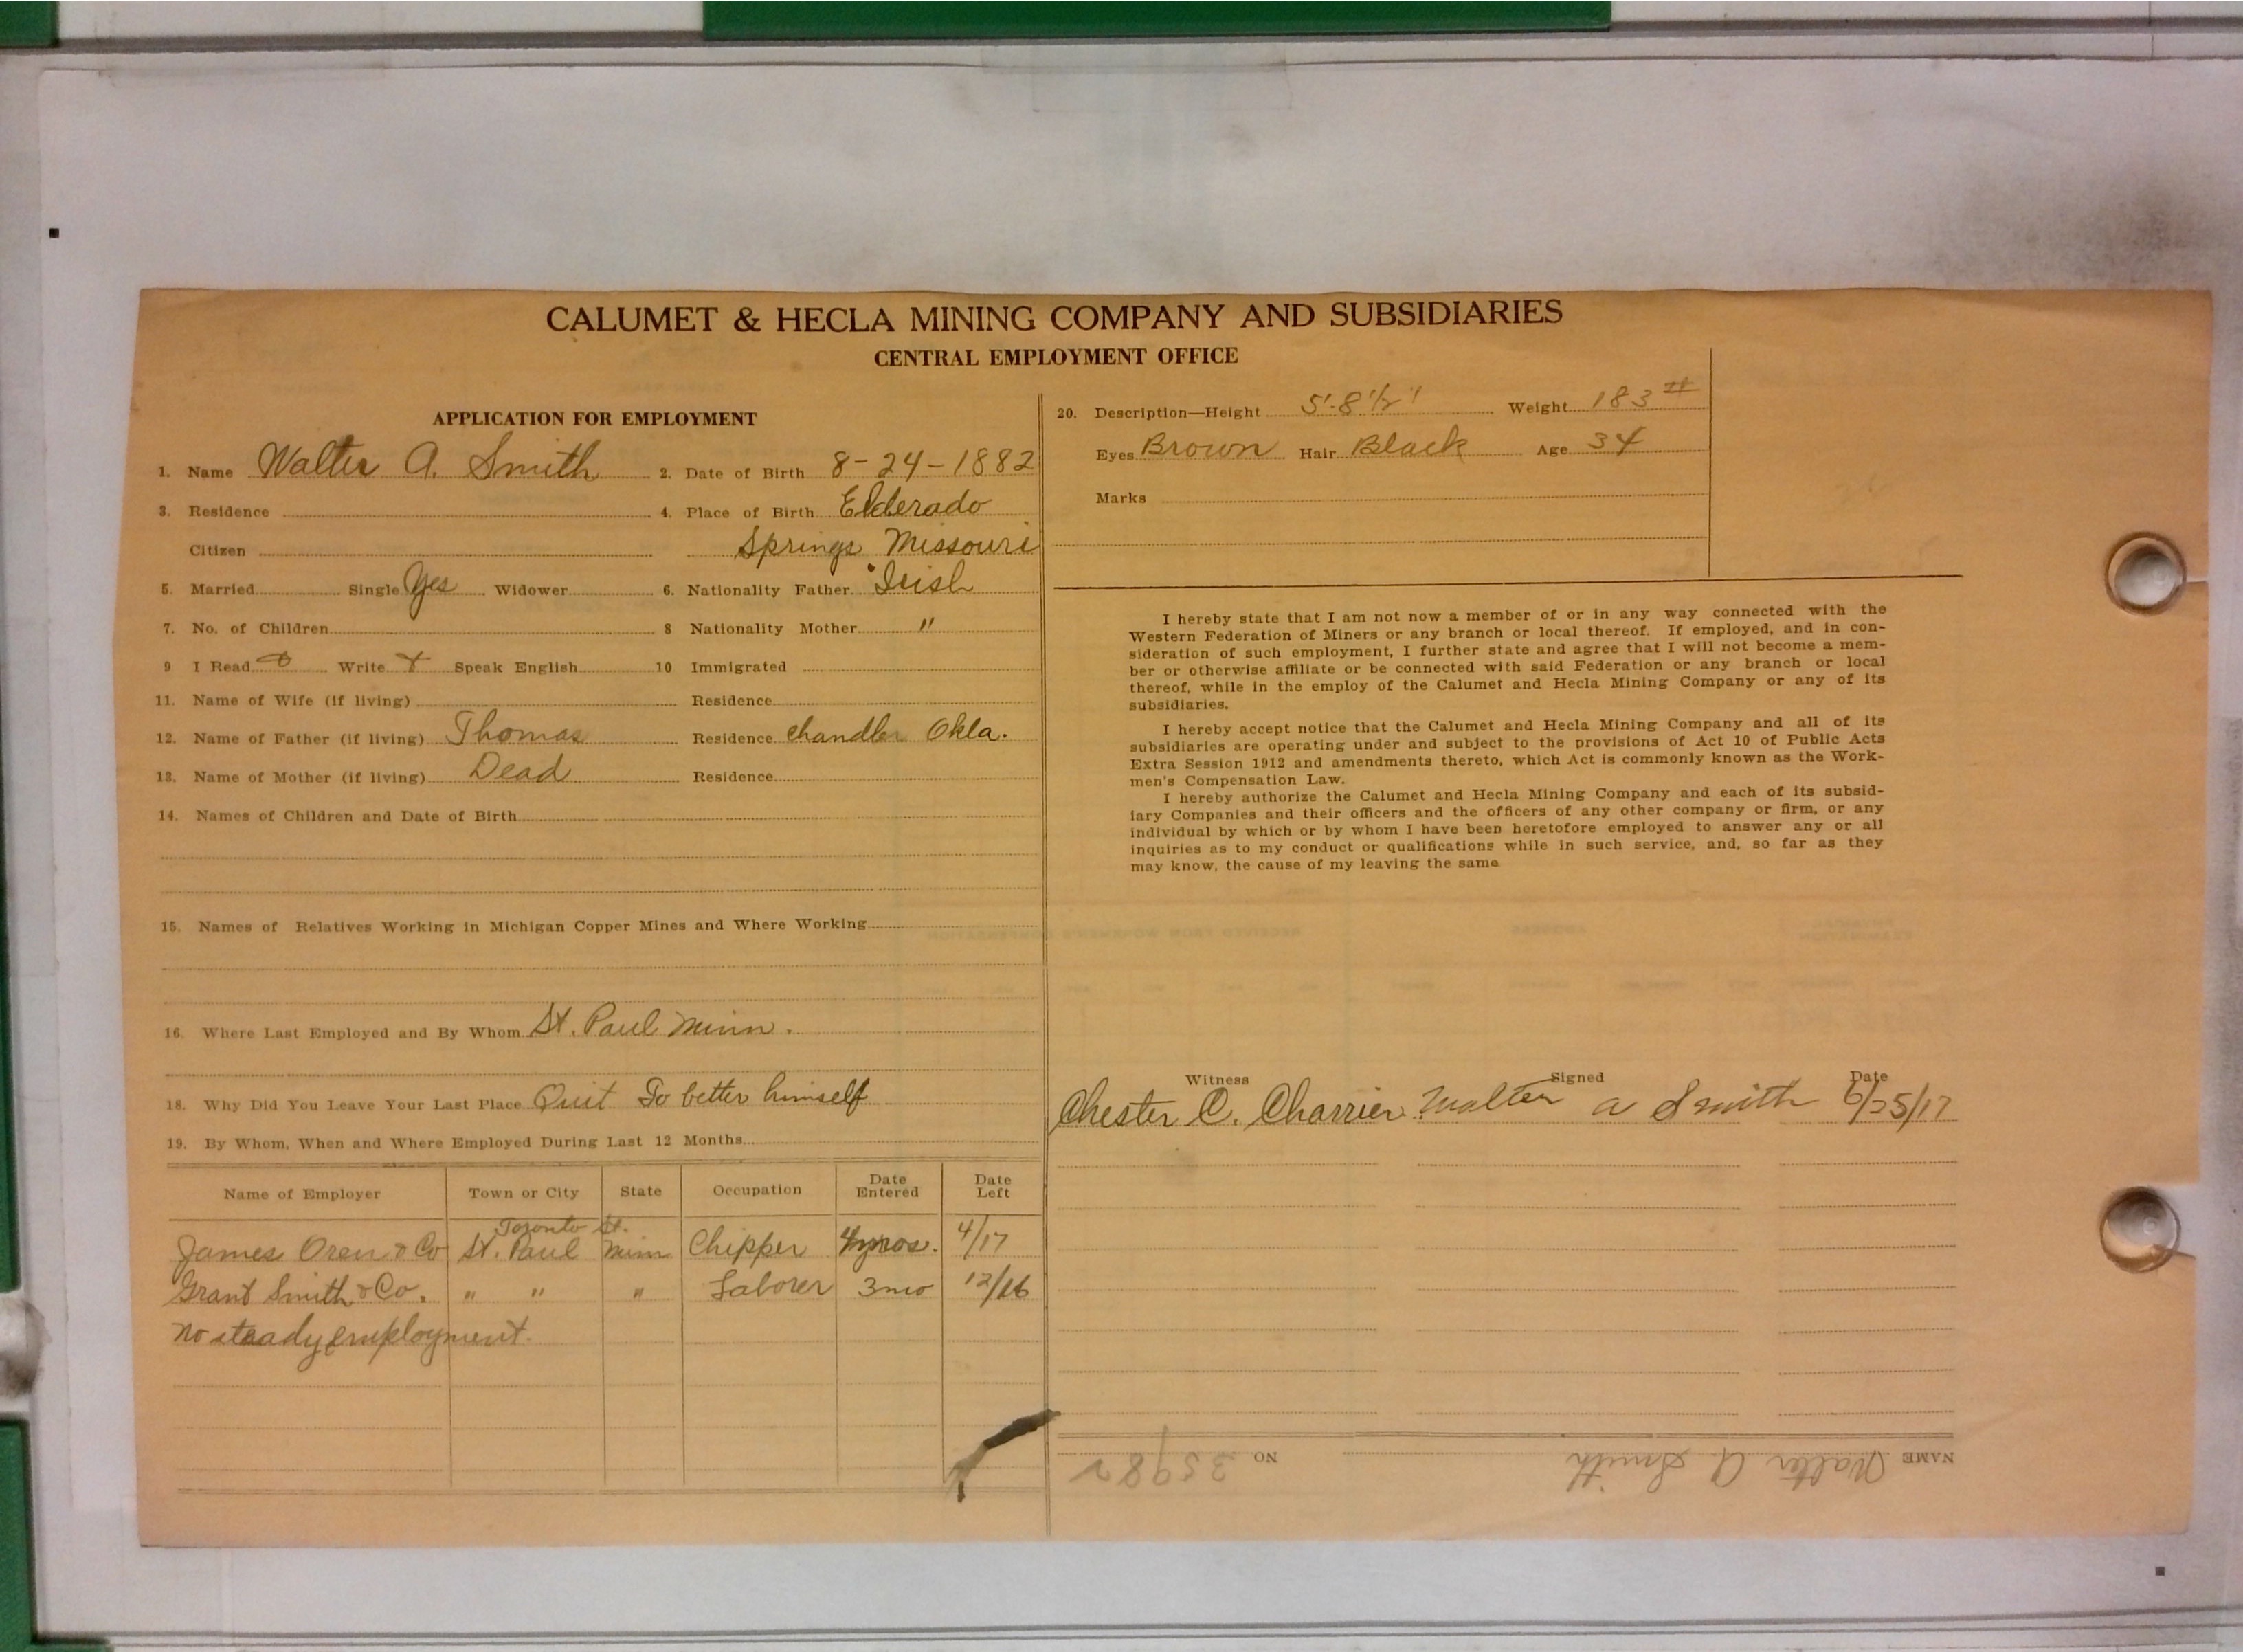 CALUMET & HECLA MINING COMPANY AND SUBSIDIARIES
CENTRAL EMPLOYMENT OFFICE
APPLICATION FOR EMPLOYMENT
1. Name Walter A. Smith 2. Date of Birth 8-24-1882
3. Residence 4. Place of Birth Elderado
Citizen Springs Missouri
5. Married Single Yes Widower 6. Nationality Father Irish
7. No. of Children 8 Nationality Mother "
9 I Read Write Speak English 10 Immigrated
11. Name of Wife (if living) Residence
12. Name of Father (if living) Thomas Residence Chandler Okla.
13. Name of Mother (if living) Dead Residence
14. Names of Children and Date of Birth
15. Names of Relatives Working in Michigan Copper Mines and Where Working
16. Where Last Employed and By Whom St. Paul Minn.
18. Why Did You Leave Your Last Place Quit To better himself
19. By Whom, When and Where Employed During Last 12 Months
Name of Employer Town or City State Occupation Date Entered Date Left
Toronto St.
James Oren & Co St. Paul Minn Chipper 4 mos. 4/17
Grant Smith & Co. " " " Laborer 3 mo 12/16
No steady employment.
20. Description—Height 5'-8 1/2" Weight 183 #
Eyes Brown Hair Black Age 34
Marks
I hereby state that I am not now a member of or in any way connected with the
Western Federation of Miners or any branch or local thereof. If employed, and in con-
sideration of such employment, I further state and agree that I will not become a mem-
ber or otherwise affiliate or be connected with said Federation or any branch or local
thereof, while in the employ of the Calumet and Hecla Mining Company or any of its
subsidiaries.
I hereby accept notice that the Calumet and Hecla Mining Company and all of its
subsidiaries are operating under and subject to the provisions of Act 10 of Public Acts
Extra Session 1912 and amendments thereto, which Act is commonly known as the Work-
men's Compensation Law.
I hereby authorize the Calumet and Hecla Mining Company and each of its subsid-
iary Companies and their officers and the officers of any other company or firm, or any
individual by which or by whom I have been heretofore employed to answer any or all
inquiries as to my conduct or qualifications while in such service, and, so far as they
may know, the cause of my leaving the same
Witness Signed Date
Chester C. Charrier Walter a Smith 6/25/17
NAME Walter A. Smith NO 35982